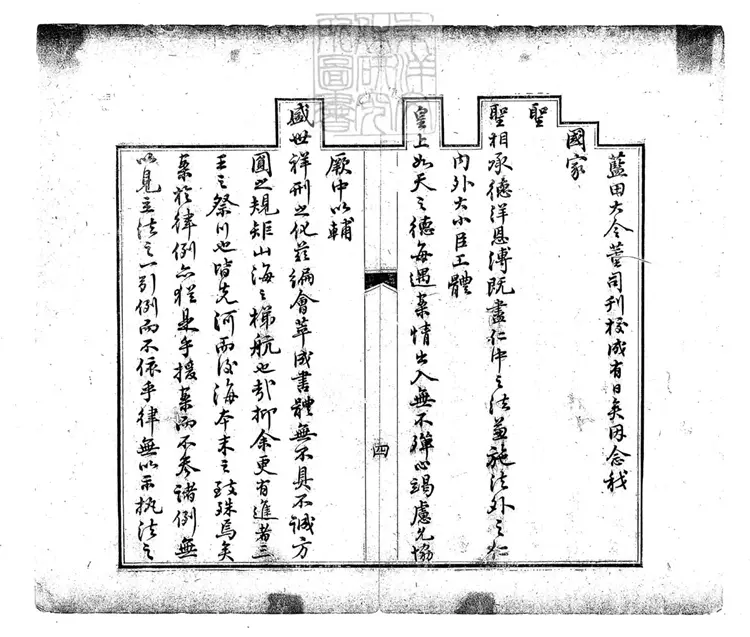 藍田大令董司刊校成有日矣因念我
國家
聖
聖相承德洋恩溥既盡仁中之法兼施法外之仁
內外大小臣工體
皇上如天之德每遇案情出入無不殫心竭慮允協
四
厥中以輔
盛世祥刑之化茲編會萃成書體無不具不誠方
圓之規矩山海之梯航也哉抑余更有進者三
王之祭川也皆先河而後海本末之致殊焉矣
案於律例亦猶是乎援案而不參諸例無
以見立法之一引例而不依乎律無以示執法之
東洋文化研究所圖書